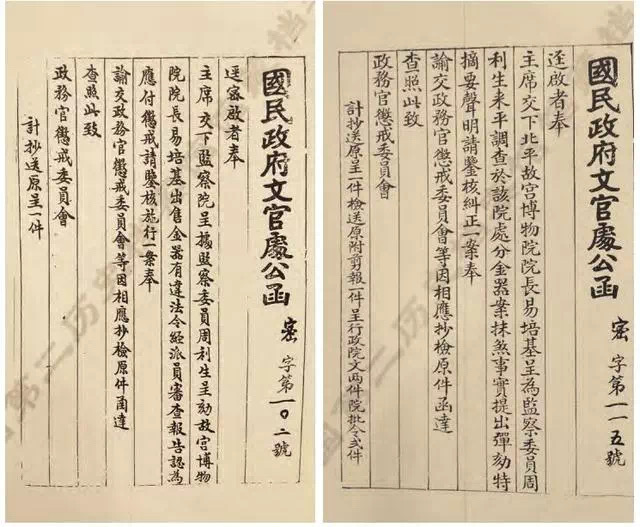 國民政府文官處公函 密 字第一〇二號
逕密啟者奉
主席交下監察院呈據監察委員周利生呈劾故宮博物
院院長易培基出售金器有違法令經派員審查報告認為
應付懲戒請鑒核施行一案奉
諭交政務官懲戒委員會等因相應抄檢原件函達
查照此致
政務官懲戒委員會
計抄送原呈一件
國民政府文官處公函 密 字第一一五號
逕啟者奉
主席交下北平故宮博物院院長易培基呈為監察委員周
利生來平調查於該院處分金器案抹煞事實提出彈劾特
摘要聲明請鑒核糾正一案奉
諭交政務官懲戒委員會等因相應抄檢原件函達
查照此致
政務官懲戒委員會
計抄送原呈一件 檢送原附剪報一件 呈行政院文兩件院批令弍件